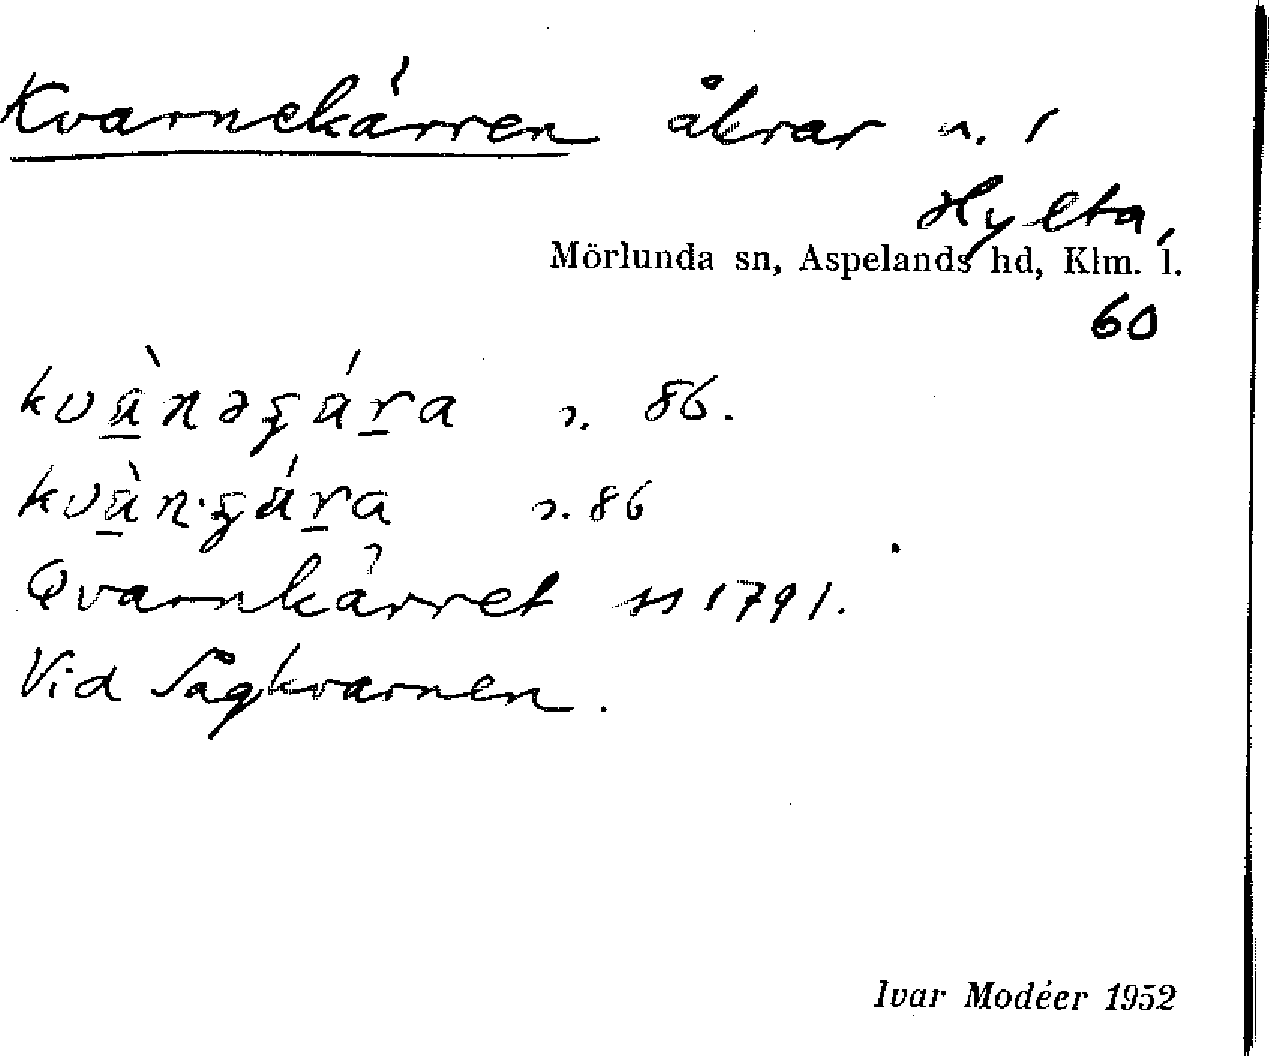 Kvarnekärren åkrar n. 1
Hylta,
Mörlunda sn, Aspelands hd, Klm. l.
60
86.
86
Qvarnkärret 1791.
Vid Sågkvarnen.
Ivar Modéer 1952